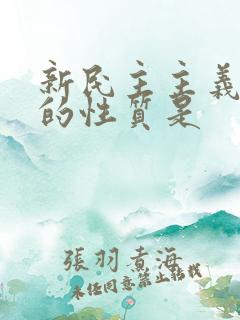 新民主主義
的性質是
張羽煮海
未经同意禁止转载